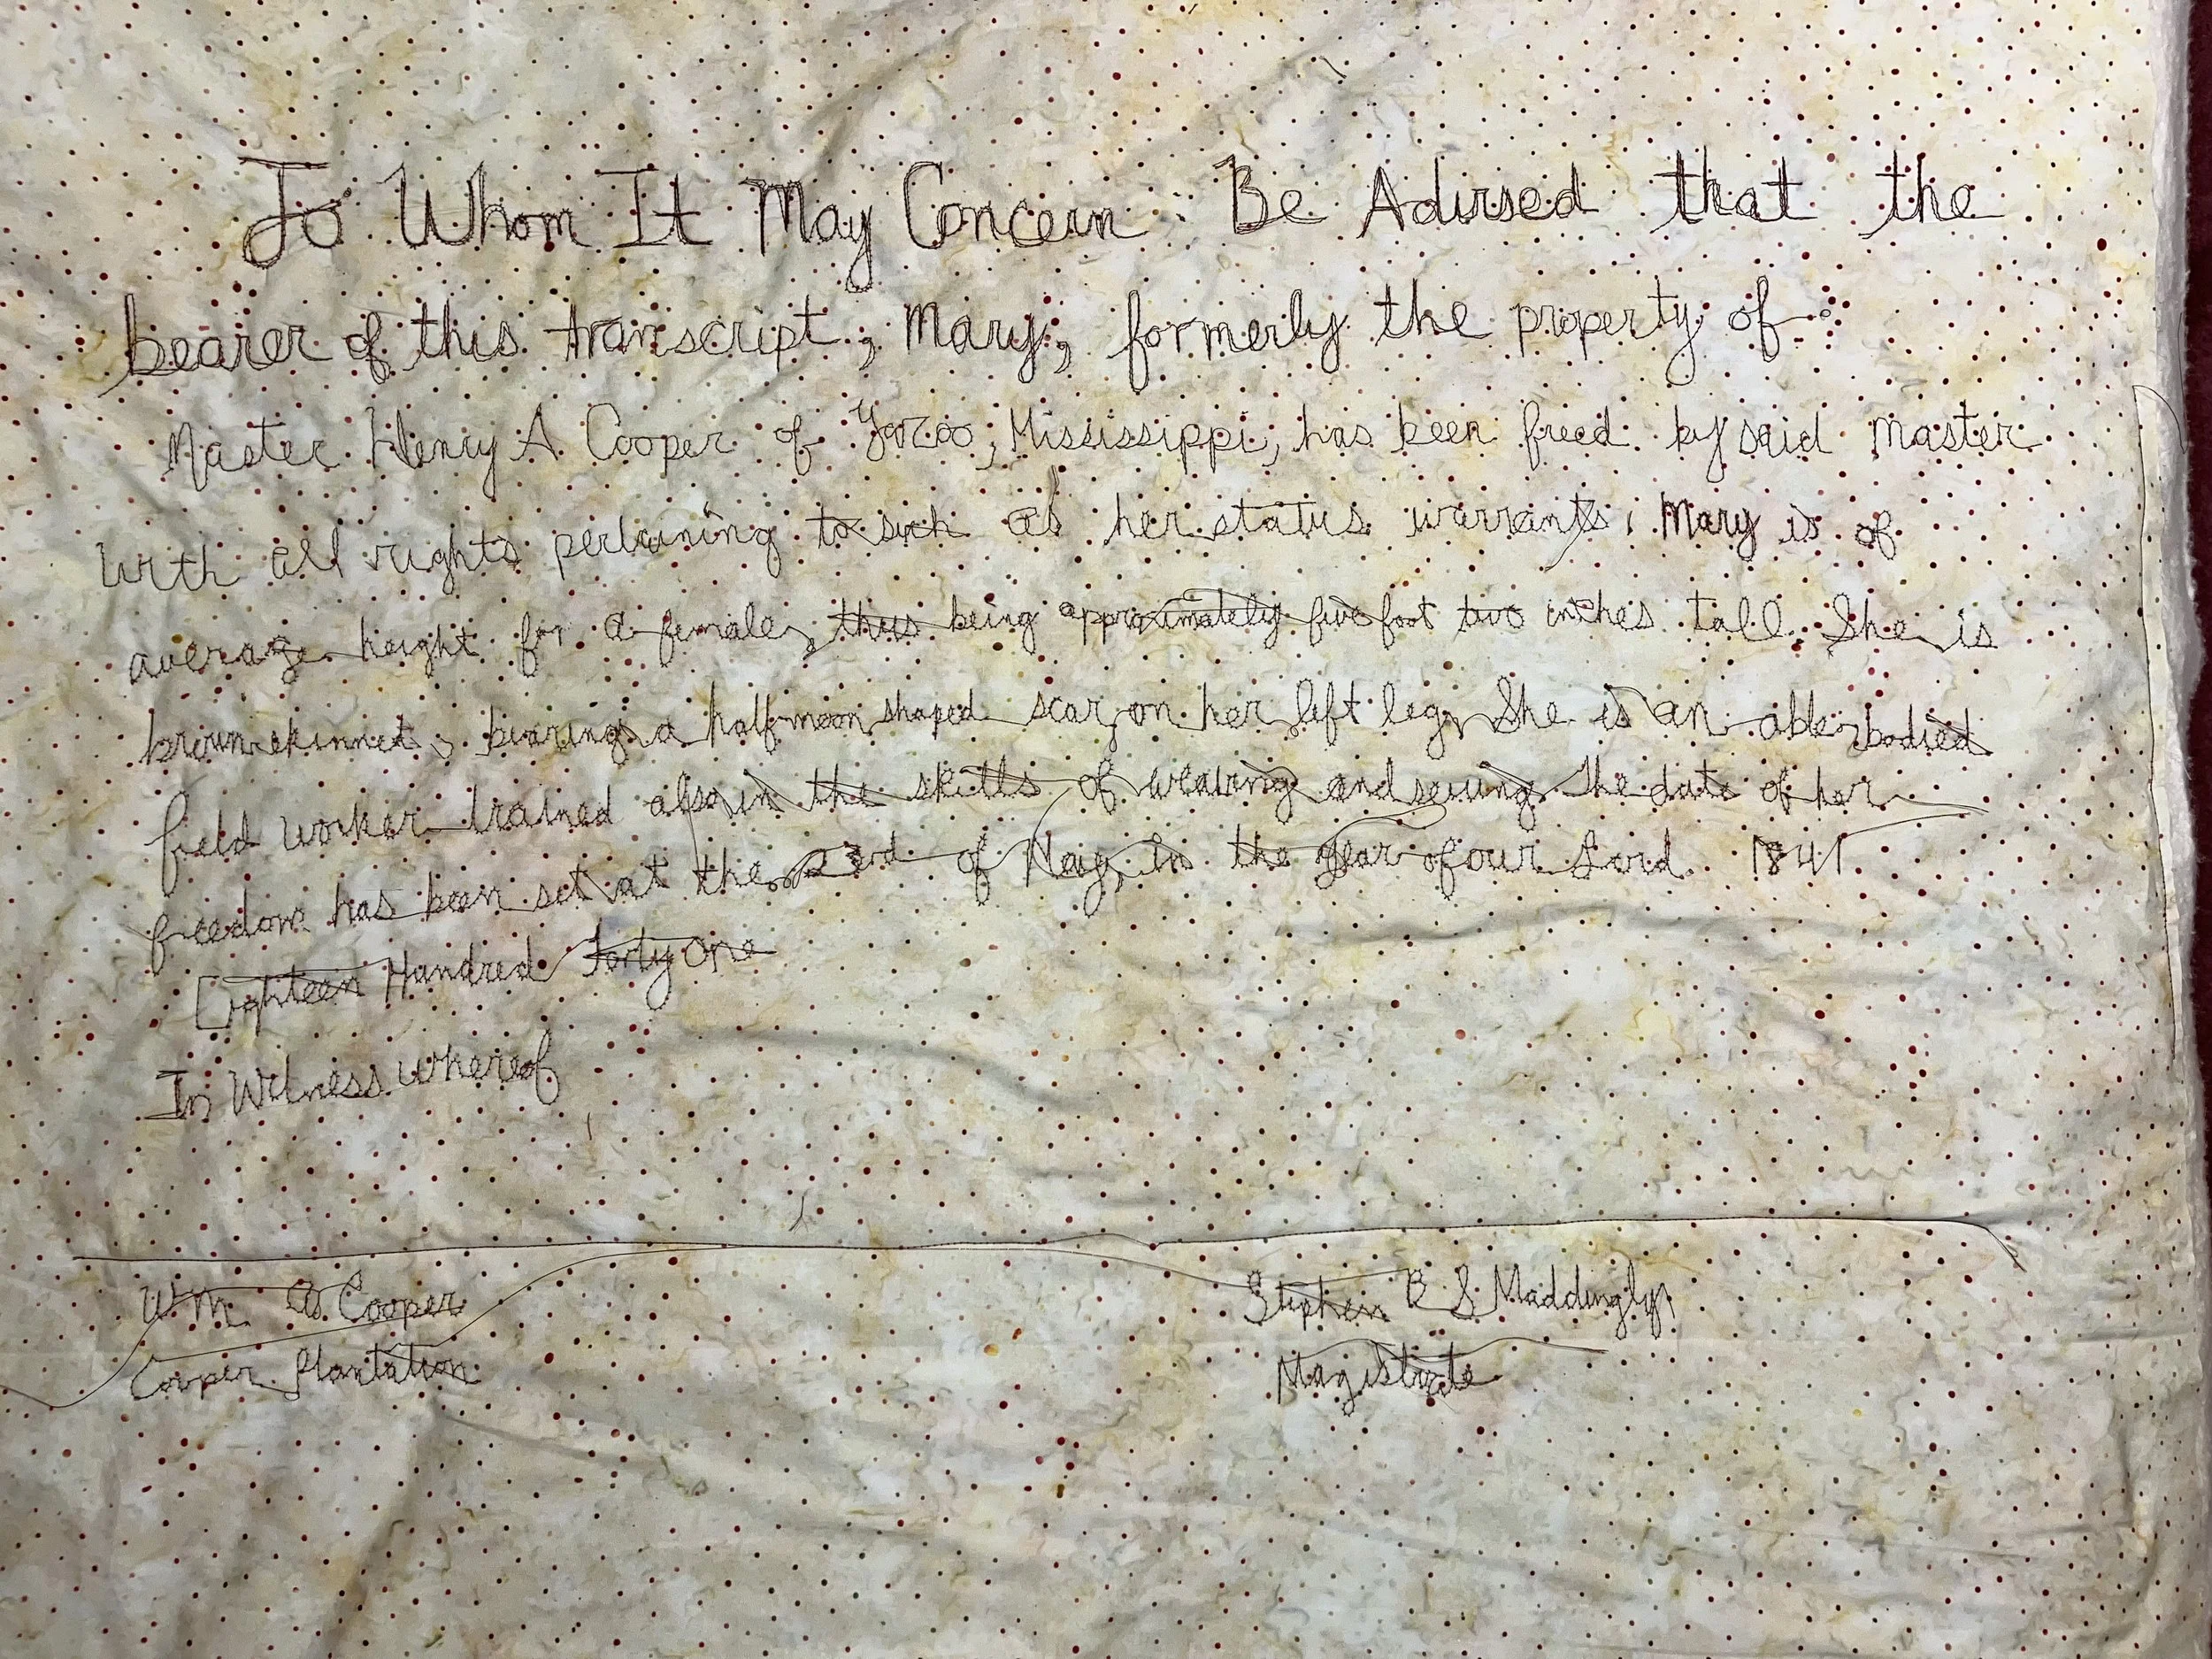 To Whom It May Concern Be Advised that the
bearer of this transcript, Mary, formerly the property of
Master Henry A Cooper of Yazoo, Mississippi, has been freed by said Master
with all rights pertaining to such as her status warrants. Mary is of
average height for a female, thus being approximately five foot two inches tall. She is
brown skinned, bearing a half moon shaped scar on her left leg. She is an able-bodied
field worker trained also in the skills of weaving and sewing. The date of her
freedom has been set at the of May, in the year of our Lord 1841
Eighteen Hundred Forty One
In Witness whereof
Wm A Cooper
Cooper Plantation
Stephen B S Maddingly
Magistrate